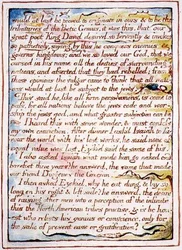 would at last be proved to originate in ours & to be the
tributaries of the Poetic Genius, it was this, that our
great poet King David desired so fervently & invokes
so pathetically, saying by this he conquers enemies &
governs kingdoms; and we so loved our God, that we
cursed in his name all the deities of surrounding
nations, and asserted that they had rebelled; from
these opinions the vulgar came to think that all nati-
ons would at last be subject to the jews.
This said he, like all firm perswasions, is come to
pass, for all nations believe the jews code and wor-
ship the jews god, and what greater subjection can be
I heard this with some wonder, & must confess
my own conviction. After dinner I ask'd Isaiah to fa-
vour the world with his lost works, he said none of
equal value was lost. Ezekiel said the same of his.
I also asked Isaiah what made him go naked and
barefoot three years? he answerd, the same that made
our friend Diogenes the Grecian.
I then asked Ezekiel, why he eat dung, & lay so
long on his right & left side? he answerd, the desire
of raising other men into a perception of the infinite
this the North American tribes practise, & is he hon-
est who resists his genius or conscience, only for
the sake of present ease or gratification?